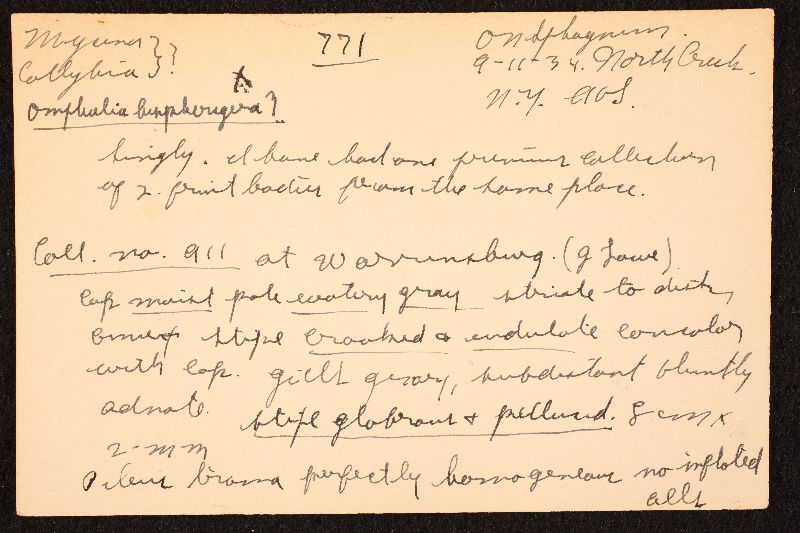 Mycena } ?
Collybia } ?
X
Omphalia ?
771
On Sphagnum.
9-11-34. North Creek.
N.Y. AHS.
Singly. I have had one previous collection
of 2 fruit bodies from the same place.
Coll. no. 911 at Warrensburg. (J Lowe)
Cap moist pale watery gray striate to disk,
convex stipe crooked & undulate concolor
with cap. gills gray, subdistant bluntly
adnate. stipe glabrous & pellucid. 8 cm x
2-mm
Pileus trama perfectly homogeneous no inflated
cells